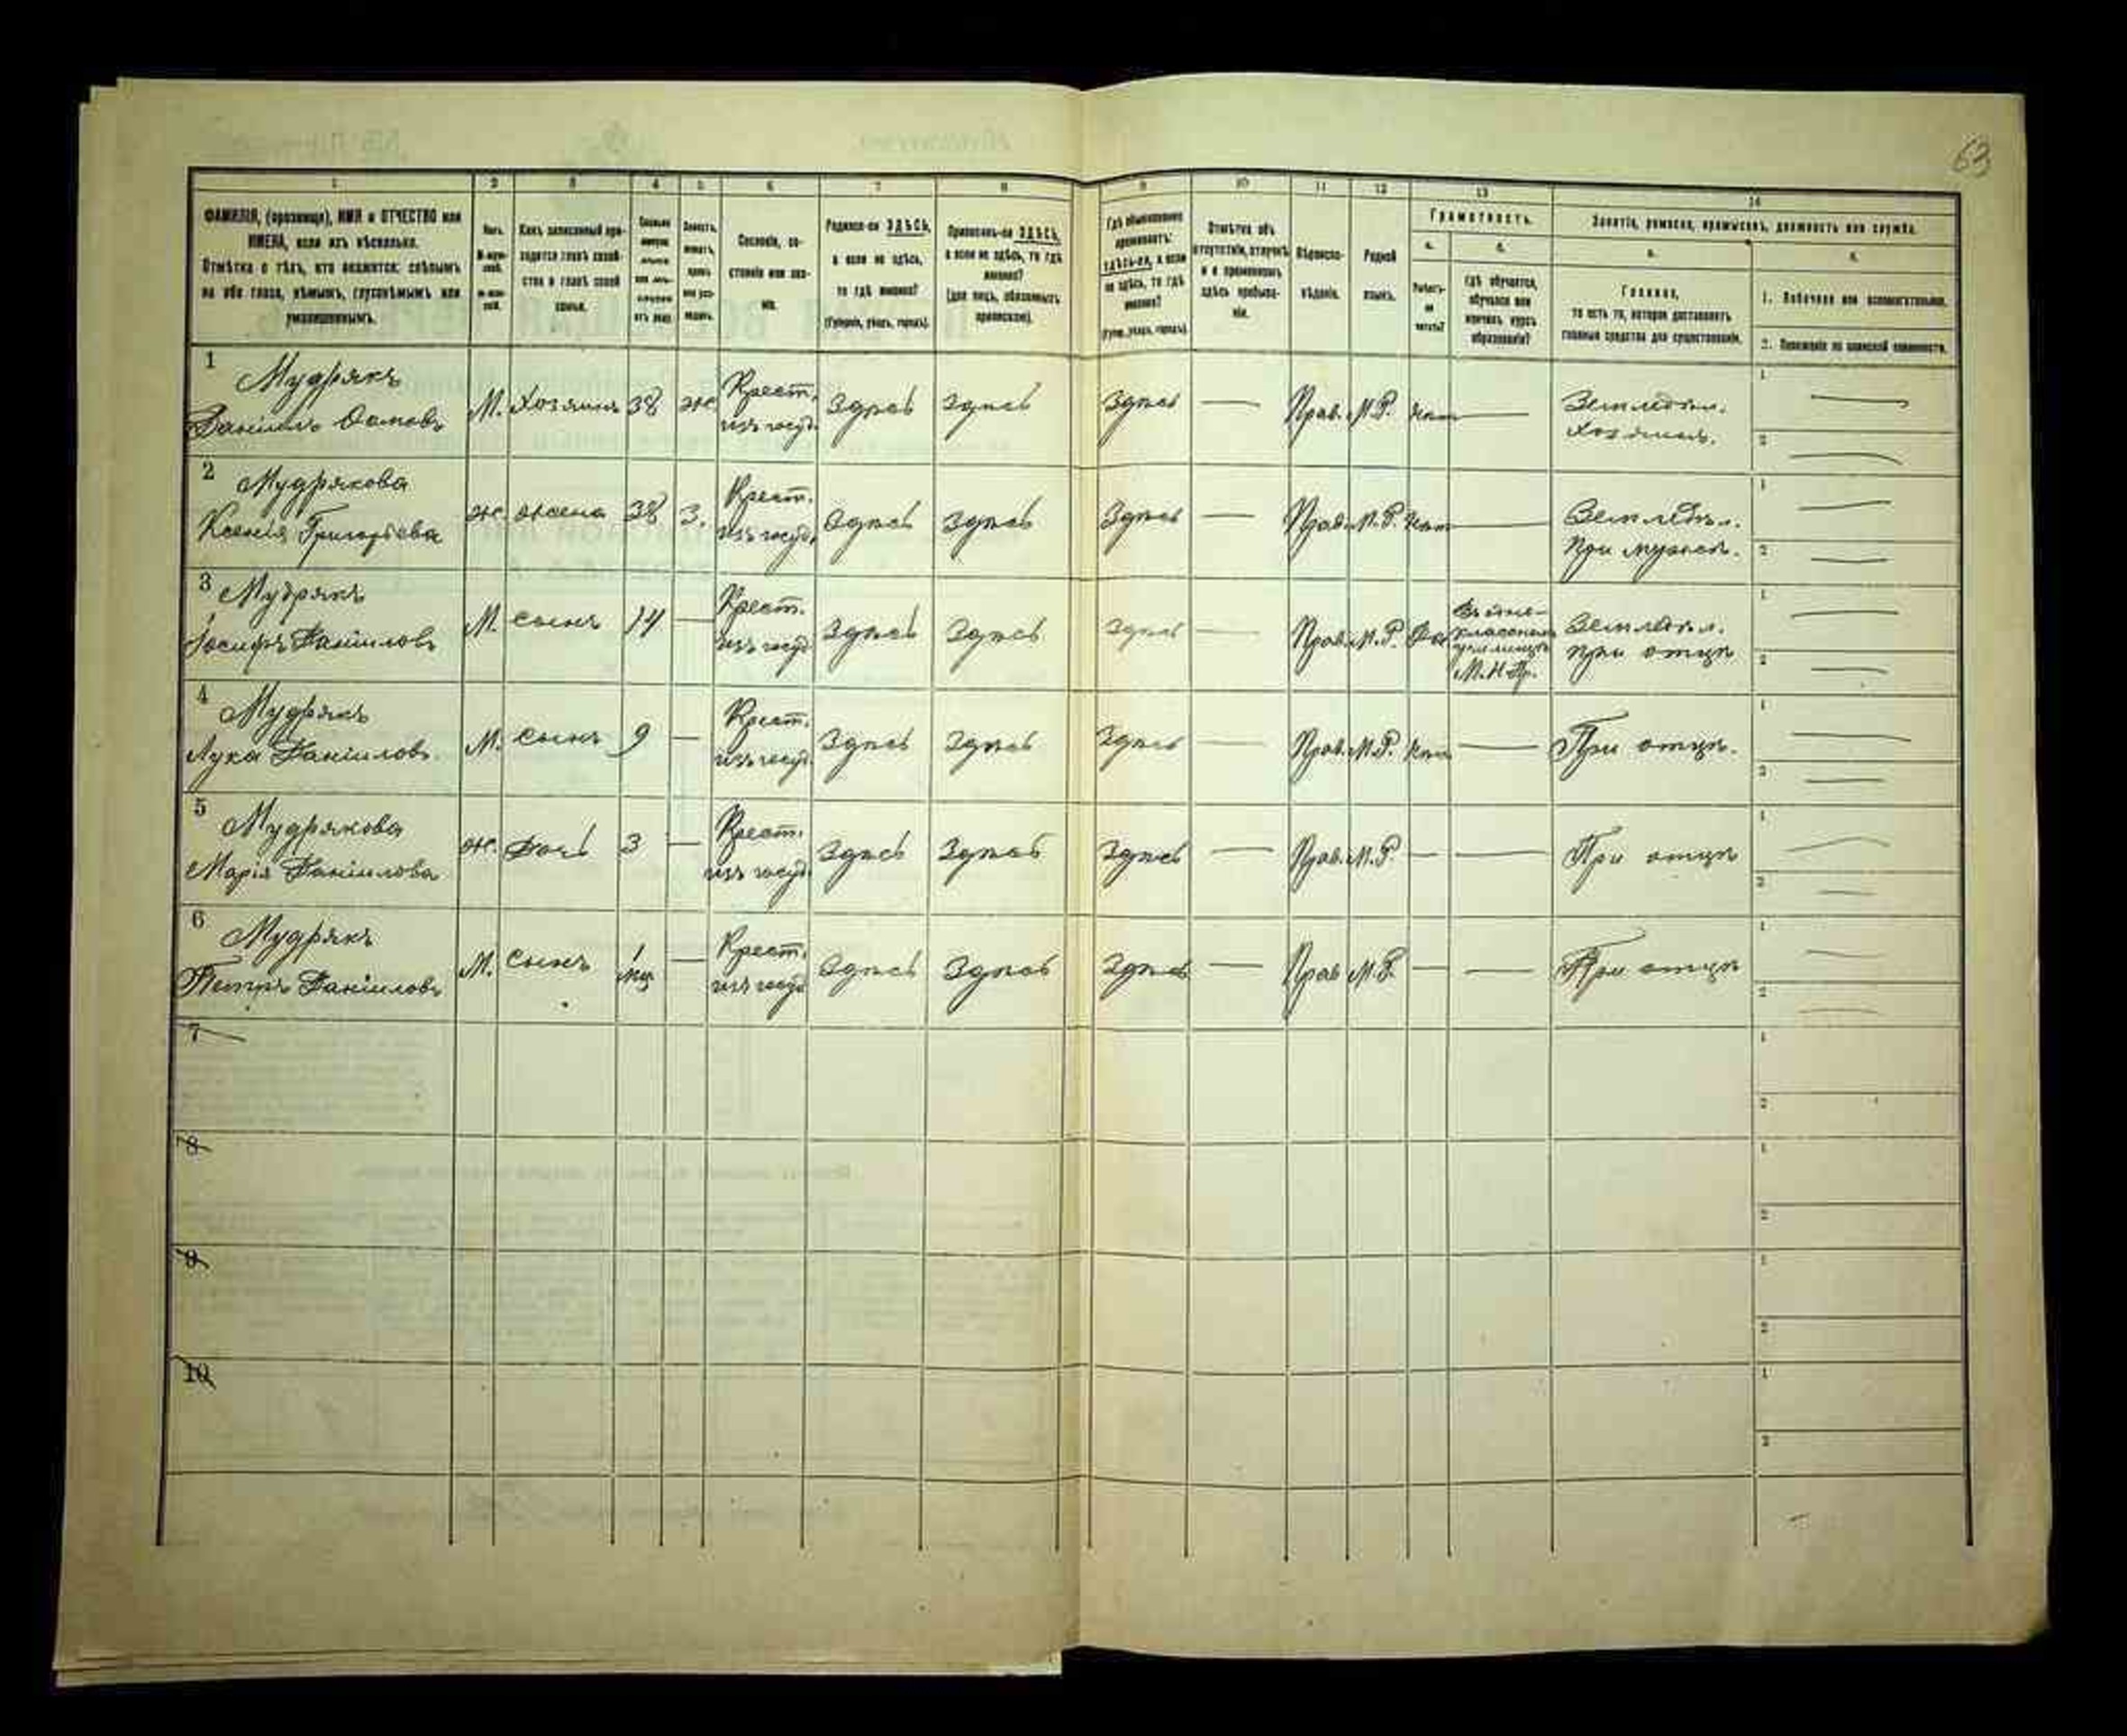 63
1 2 3 4 5 6 7 8 9 10 11 12 13 14
ФАМИЛІЯ, (прозвище), ИМЯ и ОТЧЕСТВО или
ИМЕНА, если ихъ нѣсколько.
Отмѣтка о тѣхъ, кто окажется: слѣпымъ
на оба глаза, нѣмымъ, глухонѣмымъ или
умалишеннымъ.
Полъ.
М-муж-
ской.
Ж-жен-
ской.
Какъ записанный при-
ходится главѣ хозяй-
ства и главѣ своей
семьи.
Сословіе, со-
стояніе или зва-
ніе.
Родился-ли ЗДѢСЬ,
а если не здѣсь,
то гдѣ именно?
(Губернія, уѣздъ, городъ).
Приписанъ-ли ЗДѢСЬ,
а если не здѣсь, то гдѣ
именно?
(для лицъ, обязанныхъ
припискою).
Гдѣ обыкновенно
проживаетъ:
здѣсь-ли, а если
не здѣсь, то гдѣ
именно?
(Губер., уѣздъ, городъ).
Отмѣтка объ
отсутствіи, отлучкѣ
и о временномъ
здѣсь пребыва-
ніи.
Вѣроиспо-
вѣданіе.
Родной
языкъ.
Грамотность.
а. б.
Умѣетъ-
ли
читать?
гдѣ обучается,
обучался или
кончилъ курсъ
образованія?
Занятіе, ремесло, промыселъ, должность или служба.
Главное,
то есть то, которое доставляетъ
главныя средства для существованія.
1. Побочное или вспомогательное.
2. Положеніе по воинской повинности.
1 Мудрякъ
Даніилъ Ѳомовъ М. Хозяинъ 38 ж Крест. изъ госуд. Здѣсь Здѣсь Здѣсь — Прав. М.Р. Нѣт — Земледѣл. Хозяинъ.
2 Мудрякова
Ксенія Григорьева ж. жена 38 З. Крест. изъ госуд. Здѣсь Здѣсь Здѣсь — Прав. М.Р. Нѣт — Земледѣл. При мужѣ.
3 Мудрякъ
Іосифъ Даніиловъ М. сынъ 14 — Крест. изъ госуд. Здѣсь Здѣсь Здѣсь — Прав. М.Р. Да училищѣ М.Н.Пр. Земледѣл. при отцѣ
4 Мудрякъ
Лука Даніиловъ. М. сынъ 9 — Крест. изъ госуд. Здѣсь Здѣсь Здѣсь — Прав. М.Р. Нѣт — При отцѣ.
5 Мудрякова
Марія Даніилова ж. дочь 3 — Крест. изъ госуд. Здѣсь Здѣсь Здѣсь — Прав. М.Р. — — При отцѣ
6 Мудрякъ
Петръ Даніиловъ М. сынъ 1 мц. — Крест. изъ госуд Здѣсь Здѣсь Здѣсь — Прав М.Р. — — При отцѣ
7
8
9
10